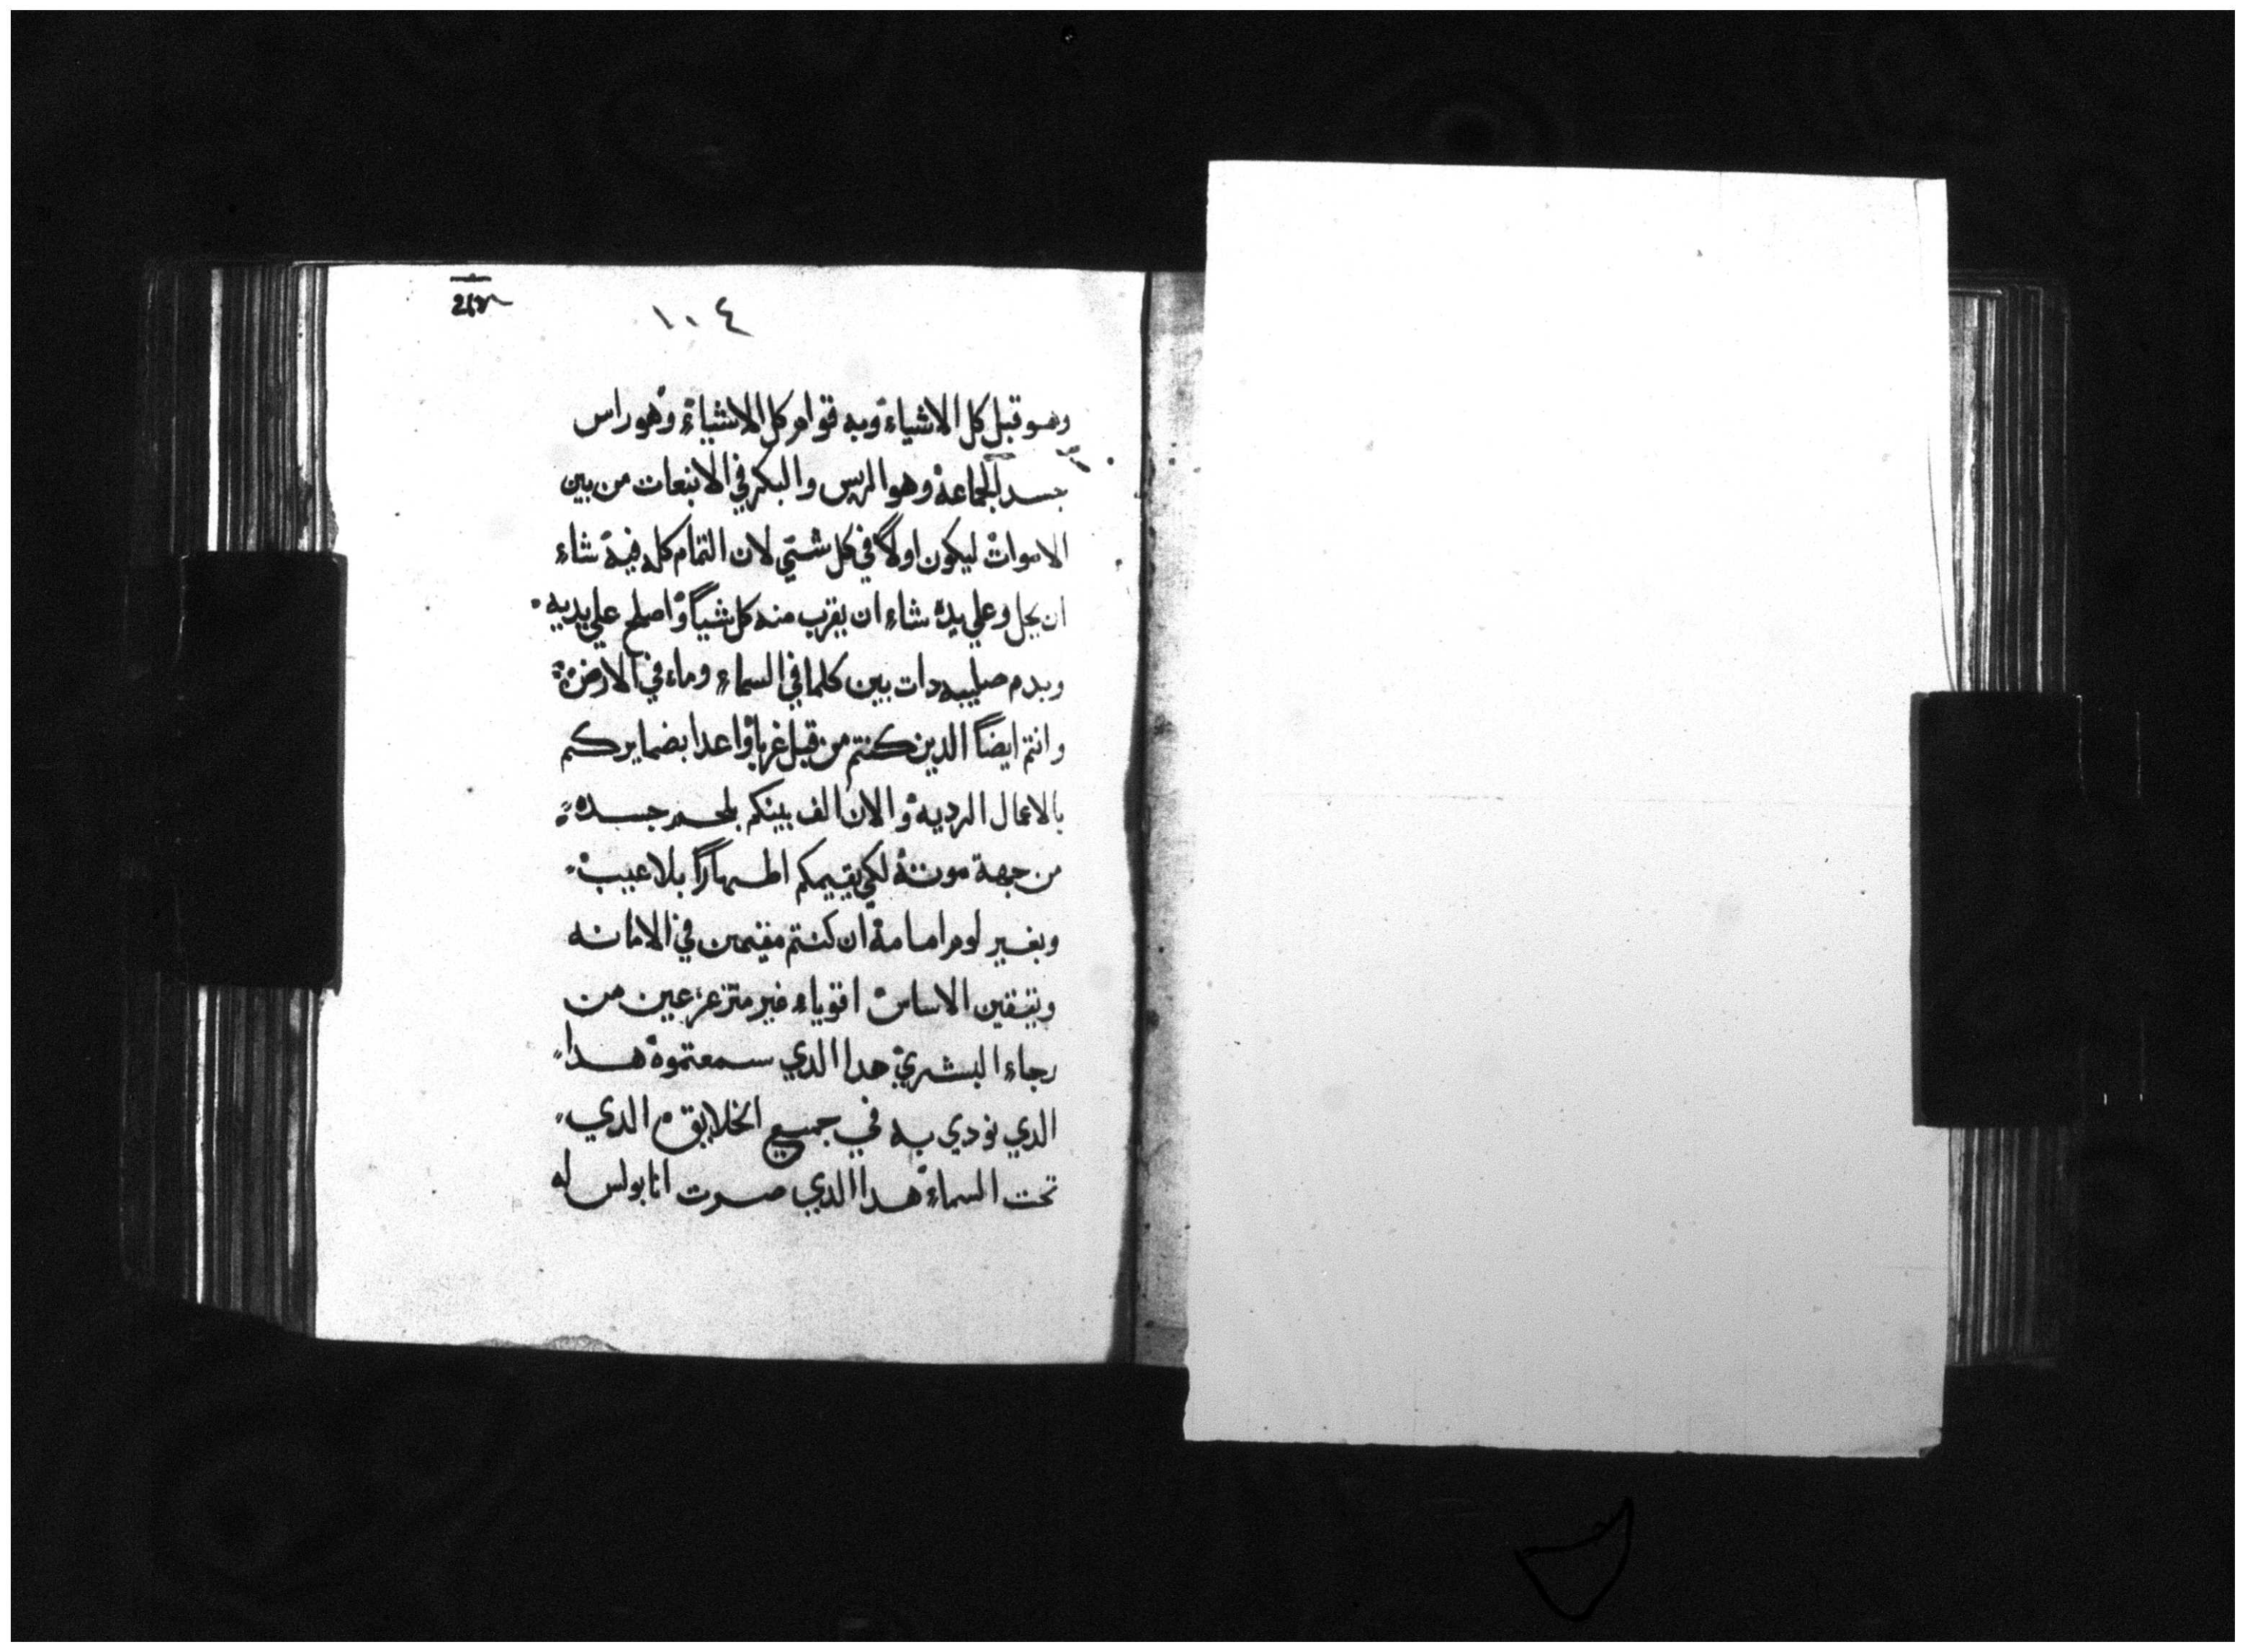 ١٠٤
وهو قبل كل الاشياء وبه قوام كل الاشياء وهو راس
جسد الجماعة وهو الريس والبكر في الانبعات من بين
الاموات ليكون اولاً في كل شي لان التمام كله فيه شاء
ان يحل وعلي يده شاء ان يقرب منه كل شياً واصلح علي يديه
وبدم صليبه دات بين كلما في السماء وماء في الارض
وانتم ايضاً الدين كنتم من قبل غربا واعدا بضمايركم
بالاعمال الردية والان الف بينكم بلحم جسده
من جهة موته لكي يقيمكم اطهاراً بلا عيب
وبغير لوم امامه ان كنتم مقيمين في الامانه
الاساس اقوياء غير متزعزعين من
رجاء البشري هدا الدي سمعتموه هدا
الدي نودي به في جميع الخلايق الدي
تحت السماء هدا الدي صرت انا بولس له